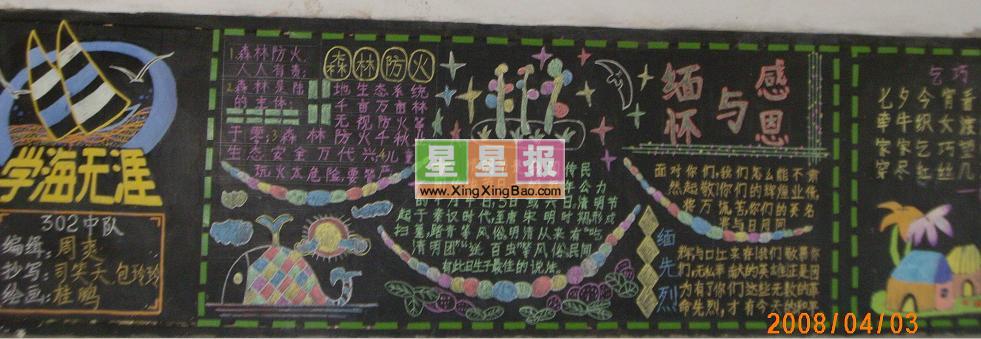 学海无涯
302中队
编缉：周爽
抄写：司笑天 包玲玲
绘画：桂鹏
森林防火
1.森林防火，
人人有责；
2.森林是陆
地生态系统
的主体；
千亩万亩林
无视防火等
于零；3.森林防火千秋
生态安全万代兴；儿童
玩火太危险，要
星星报
www.XingXingBao.com
传民
公力
清明节
起于秦汉时代，至唐宋明时期形式
扫墓，踏青等风俗，明清从来有“吃
清明团”“送百虫”等风俗，民间
有此日生子最佳的说法。
缅怀与感恩
面对你们，我们怎么能不肃
然起敬！你们的辉煌业伟，
将万流苦，你们的英名
与日月同
缅先烈
们，无私奉献的英雄正是因
为有了你们这些无数的革
命先烈，才有今天的和平
乞巧
七夕今宵看
牵牛织女渡
家家乞巧望
尽红丝几
2008/04/03